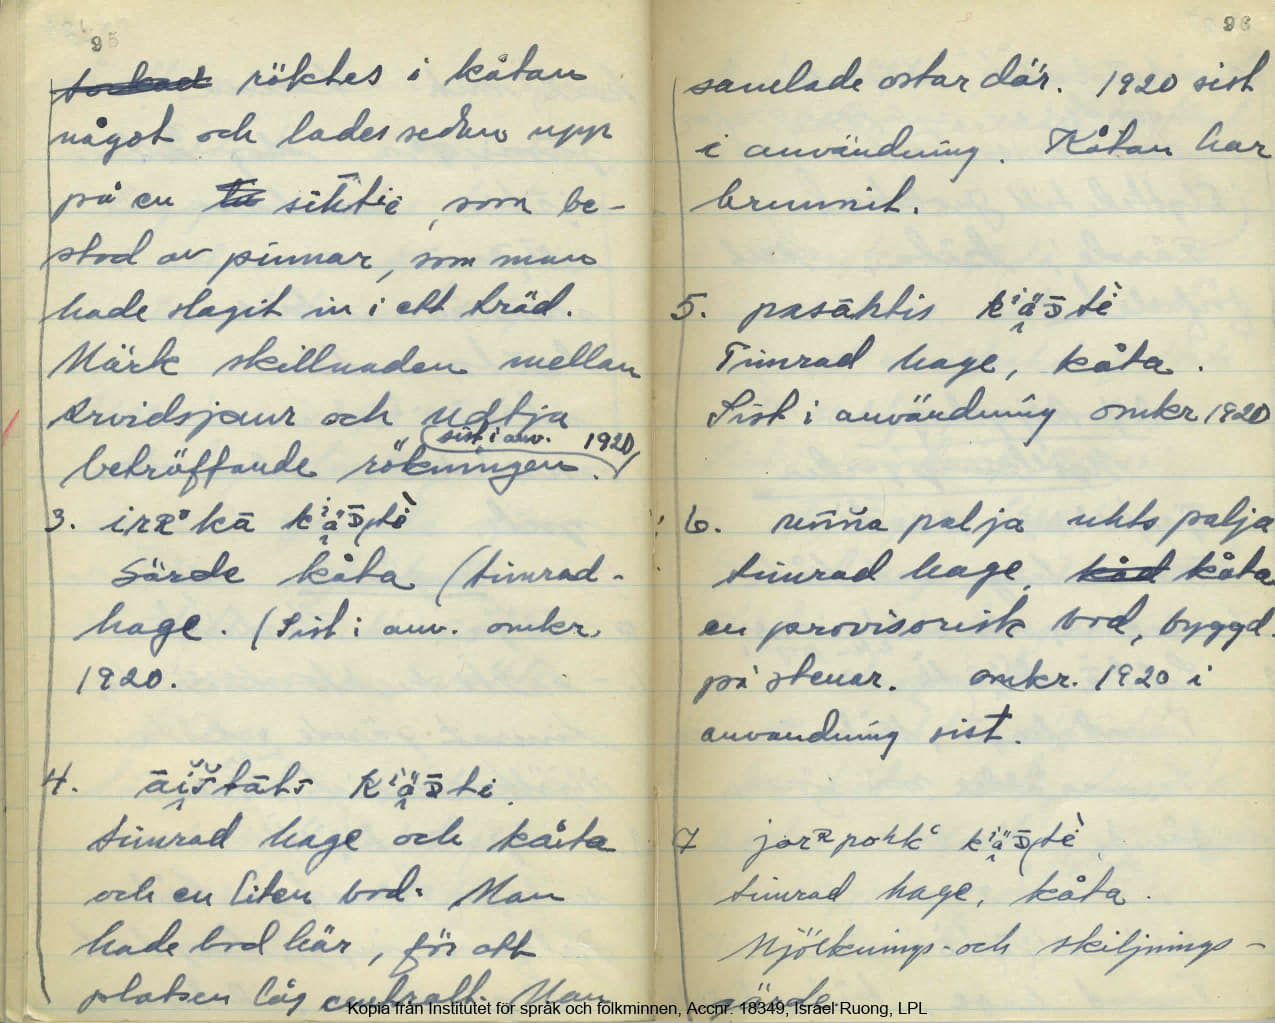 95
torkad röktes i kåtan
något och lades sedan upp
på en sihtie, som be-
stod av pinnar, som man
hade slagit in i ett träd.
Märk skillnaden mellan
Arvidsjaur och Udtja
(sist i anv. 1920)
beträffande rökningen.
3. 
Särde kåta (timrad-
hage. (Sist i anv. omkr.
1920.
4.
timrad hage och kåta
och en liten bod. Man
hade bod här, för att
platsen låg centralt. Man
96
samlade ostar där. 1920 sist
i användning. Kåtan har
brunnit.
5. pasāhtis
Timrad hage, kåta.
Sist i användning omkr 1920
6. palja palja
timrad hage, kåd kåta
en provisorisk bod, byggd.
på stenar. omkr. 1920 i
anvandning sist.
7
timrad hage, kåta.
Mjölknings- och skiljnings-
gärde
Kopia från Institutet för språk och folkminnen, Accnr. 18349, Israel Ruong, LPL